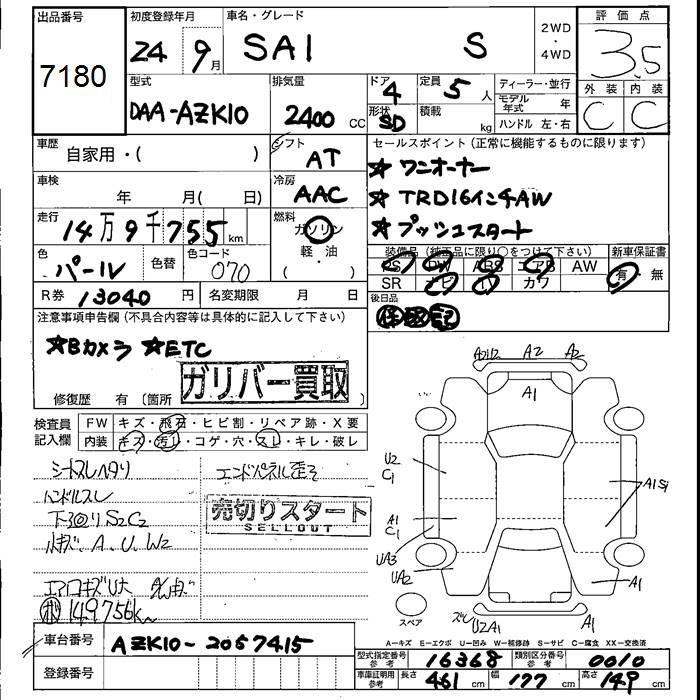 出品番号 初度登録年月 車名・グレード 2WD・4WD 評価点
7180 24年9月 SAI S 3.5
型式 排気量 ドア 定員 ディーラー・並行 外装 内装
DAA-AZK10 2400cc 4 5人 モデル年式 年 C C
形状 SD 積載 kg ハンドル 左・右
車歴 自家用・( ) シフト AT セールスポイント(正常に機能するものに限ります)
★ワンオーナー
車検 年 月( 日) 冷房 AAC ★TRD16インチAW
走行 14万9千755km 燃料 ガソリン ★プッシュスタート
軽・油
( ・ )
色 パール 色替 色コード 070 装備品(純正品に限り○をつけて下さい) 新車保証書
PS PW ABS エアB AW 有・無
R券 13040円 名変期限 月 日 SR ナビ TV カワ
注意事項申告欄(不具合内容等は具体的に記入して下さい) 後日品
★Bカメラ ★ETC 保 取 記
修復歴 有(箇所 ガリバー買取
検査員記入欄 FW キズ・飛石・ヒビ割・リペア跡・X要
内装 キズ・汚れ・コゲ・穴・スレ・キレ・破レ
シートスレヘタリ エンドパネル歪ミ
ハンドルスレ 売切りスタート
下回りS2C2 SELLOUT
小キズ、A、U、W2
エアロキズU大
149756km
A2 A2 A1
U2 C1 A1 S1
A1 C1
UA3
UA2 A1
スペア U2A1 A1
A-キズ E-エクボ U-凹み W-補修跡 S-サビ C-腐食 XX-交換済
車台番号 AZK10-2057415
型式指定番号 参考 16368 類別区分番号 参考 0010
登録番号 車庫証明用 参考 長さ 461cm 幅 177cm 高さ 149cm